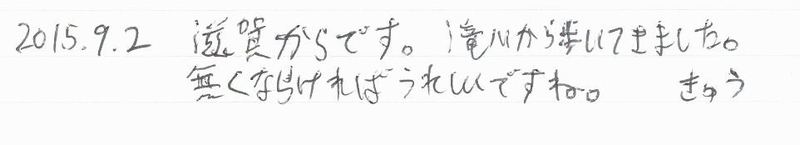 2015.9.2 滋賀からです。滝川から歩いてきました。
無くならければうれしいですね。 きゅう